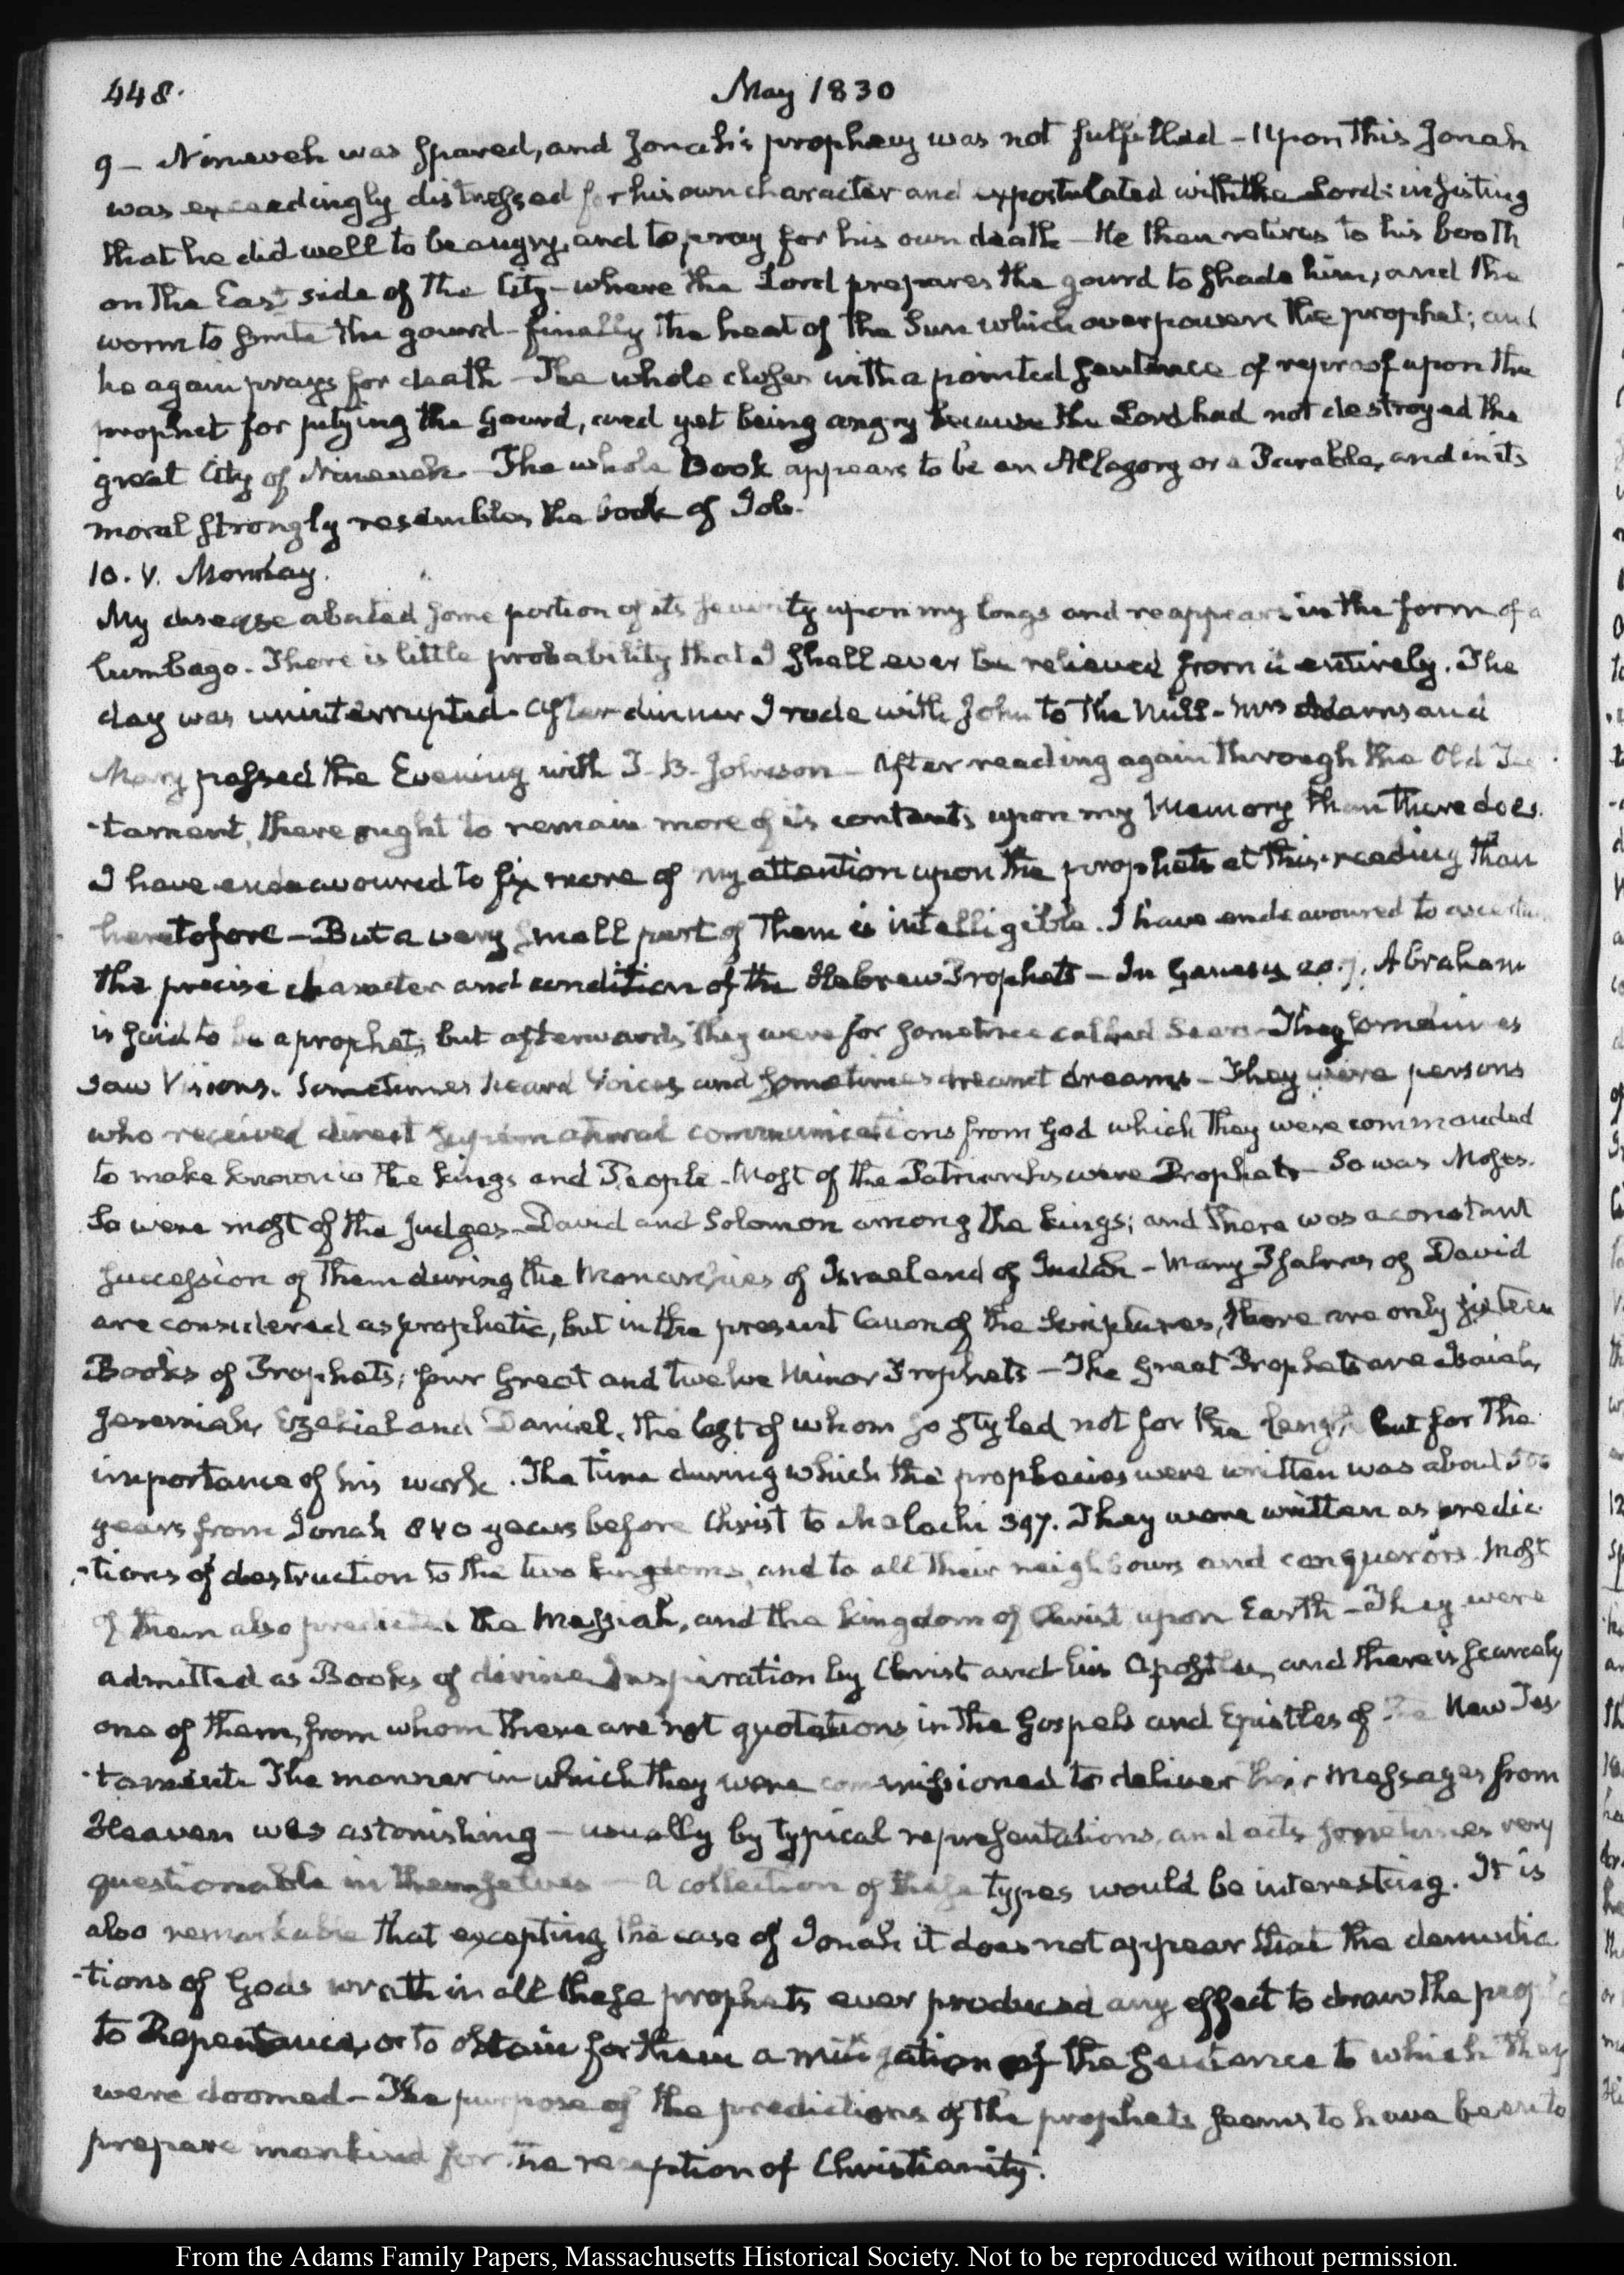 448.
May 1830
9 — Nineveh was spared, and Jonah's prophecy was not fulfilled — Upon this Jonah
was exceedingly distressed for his own character and expostulated with the Lord: insisting
that he did well to be angry, and to pray for his own death — He then retires to his booth
on the East side of the City — where the Lord prepares the gourd to shade him, and the
worm to smite the gourd — finally the heat of the Sun which overpowers the prophet; and
he again prays for death — The whole closes with a pointed sentence of reproof upon the
prophet for pitying the Gourd, and yet being angry because the Lord had not destroyed the
great City of Nineveh — The whole Book appears to be an Allegory or a Parable, and in its
moral strongly resembles the book of Job.
10. V. Monday.
My disease abated some portion of its severity upon my lungs and reappears in the form of a
lumbago. There is little probability that I shall ever be relieved from it entirely. The
day was uninterrupted. After dinner I rode with John to the Mill — Mrs Adams and
Mary passed the Evening with T. B. Johnson — After reading again through the Old Tes
-tament, there ought to remain more of its contents upon my Memory than there does.
I have endeavoured to fix more of my attention upon the prophets at this reading than
heretofore — But a very small part of them is intelligible. I have endeavoured to ascertain
the precise character and condition of the Hebrew Prophets — In Genesis 20.7. Abraham
is said to be a prophet, but afterwards they were for sometime called Seers — They sometimes
saw Visions. Sometimes heard Voices and sometimes dreamt dreams — They were persons
who received direct supernatural communications from God which they were commanded
to make known to the kings and People — Most of the Patriarchs were Prophets — So was Moses.
So were most of the Judges — David and Solomon among the kings; and there was a constant
succession of them during the Monarchies of Israel and of Judah — Many Psalms of David
are considered as prophetic, but in the present Canon of the Scriptures, there are only sixteen
Books of Prophets; four Great and twelve Minor Prophets — The Great Prophets are Isaiah,
Jeremiah, Ezekiel and Daniel, the last of whom so styled not for the length but for the
importance of his work. The time during which the prophecies were written was about
years from Jonah 840 years before Christ to Malachi 397. They were written as predic
-tions of destruction to the two kingdoms, and to all their neighbours and conquerors. Most
of them also predicted the Messiah, and the kingdom of Christ upon Earth — They were
admitted as Books of divine Inspiration by Christ and his Apostles, and there is scarcely
one of them, from whom there are not quotations in the Gospels and Epistles of the New Tes
-tament. The manner in which they were commissioned to deliver their Messages from
Heaven was astonishing — usually by typical representations, and acts sometimes very
questionable in themselves — A collection of these types would be interesting. It is
also remarkable that excepting the case of Jonah it does not appear that the denuntia
-tions of Gods wrath in all these prophets ever produced any effect to draw the people
to Repentance, or to obtain for them a mitigation of the sentence to which they
were doomed — The purpose of the predictions of the prophets seems to have been to
prepare mankind for the reception of Christianity.
From the Adams Family Papers, Massachusetts Historical Society. Not to be reproduced without permission.